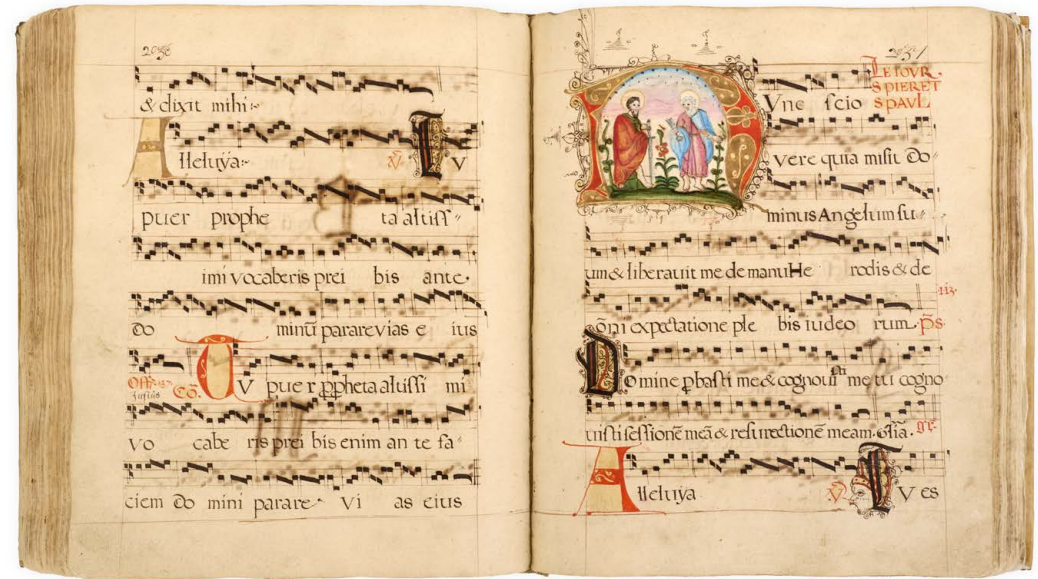 & dixit mihi:~
Alleluÿa:~ ℣ TV
puer prophe ta altiss"
imi vocaberis prei bis ante.
Do minū parare vias e ius
Off. CŌ. TV puer ꝓpheta altissi mi
vo cabe ris prei bis enim an te fa"
ciem Do mini parare~ Vi as eius
LE IOVR
S PIERE T
NVnc scio S PAVL
vere quia misit Do"
minus Angelum su"
um & liberavit me de manu He rodis & de
om̄i expectatione ple bis iudeo rum. p̄s.
Domine ꝓbasti me & cognovisti me tu cogno
visti sessionē meā & resurrectionē meam. Glīa.
Alleluya ℣ TV es